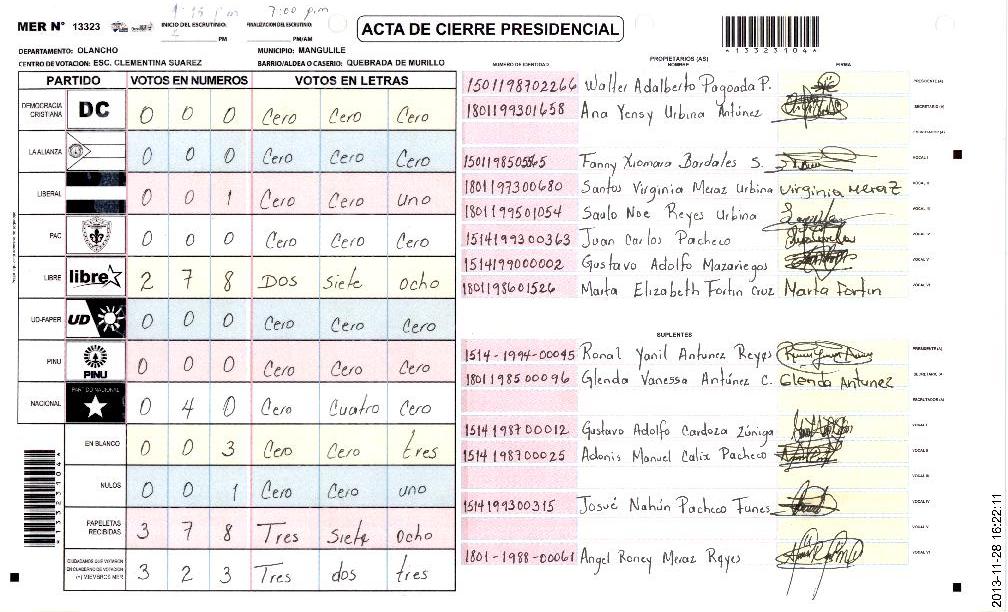 1:15 pm 7:00 pm
MER N° 13323 INICIO DEL ESCRUTINIO: PM FINALIZACION DEL ESCRUTINIO: PM/AM
ACTA DE CIERRE PRESIDENCIAL
*1332310 4*
DEPARTAMENTO: OLANCHO MUNICIPIO: MANGULILE
CENTRO DE VOTACION: ESC. CLEMENTINA SUAREZ BARRIO/ALDEA O CASERIO: QUEBRADA DE MURILLO
PARTIDO VOTOS EN NUMEROS VOTOS EN LETRAS
DEMOCRACIA CRISTIANA DC 0 0 0 Cero Cero Cero
LA ALIANZA 0 0 0 Cero Cero Cero
LIBERAL 0 0 1 Cero Cero uno
PAC 0 0 0 Cero Cero Cero
LIBRE libre 2 7 8 Dos Siete ocho
UD-FAPER UD 0 0 0 Cero Cero Cero
PINU PINU 0 0 0 Cero Cero Cero
NACIONAL PARTIDO NACIONAL 0 4 0 Cero Cuatro Cero
EN BLANCO 0 0 3 Cero Cero tres
NULOS 0 0 1 Cero Cero uno
PAPELETAS RECIBIDAS 3 7 8 Tres Siete ocho
CIUDADANOS QUE VOTARON EN CUADERNO DE VOTACION (+) MIEMBROS MER 3 2 3 Tres dos tres
PROPIETARIOS (AS)
NUMERO DE IDENTIDAD NOMBRE FIRMA
1501198702266 Walter Adalberto Pagoada P. PRESIDENTE(A)
1801199301658 Ana Yensy Urbina Antúnez SECRETARIO(A)
ESCRUTADOR(A)
Fanny Xiomara Bardales S. VOCAL I
1801197300680 Santos Virginia Meraz Urbina Virginia Meraz VOCAL II
1801199501054 Saulo Noe Reyes Urbina VOCAL III
1514199300363 Juan Carlos Pacheco VOCAL IV
1514199000002 Gustavo Adolfo Mazariegos VOCAL V
1801198601526 Marta Elizabeth Fortin Cruz Marta Fortin VOCAL VI
SUPLENTES
1514-1994-00045 Ronal Yanil Antunez Reyes PRESIDENTE(A)
1801198500096 Glenda Vanessa Antúnez C. Glenda Antunez SECRETARIO(A)
ESCRUTADOR(A)
1514198700012 Gustavo Adolfo Cardoza Zúniga VOCAL I
1514198700025 Adonis Manuel Calix Pacheco VOCAL II
VOCAL III
1514199300315 Josué Nahún Pacheco Funes VOCAL IV
VOCAL V
1801-1988-00061 Angel Roney Meraz Reyes VOCAL VI
2013-11-28 16:22:11